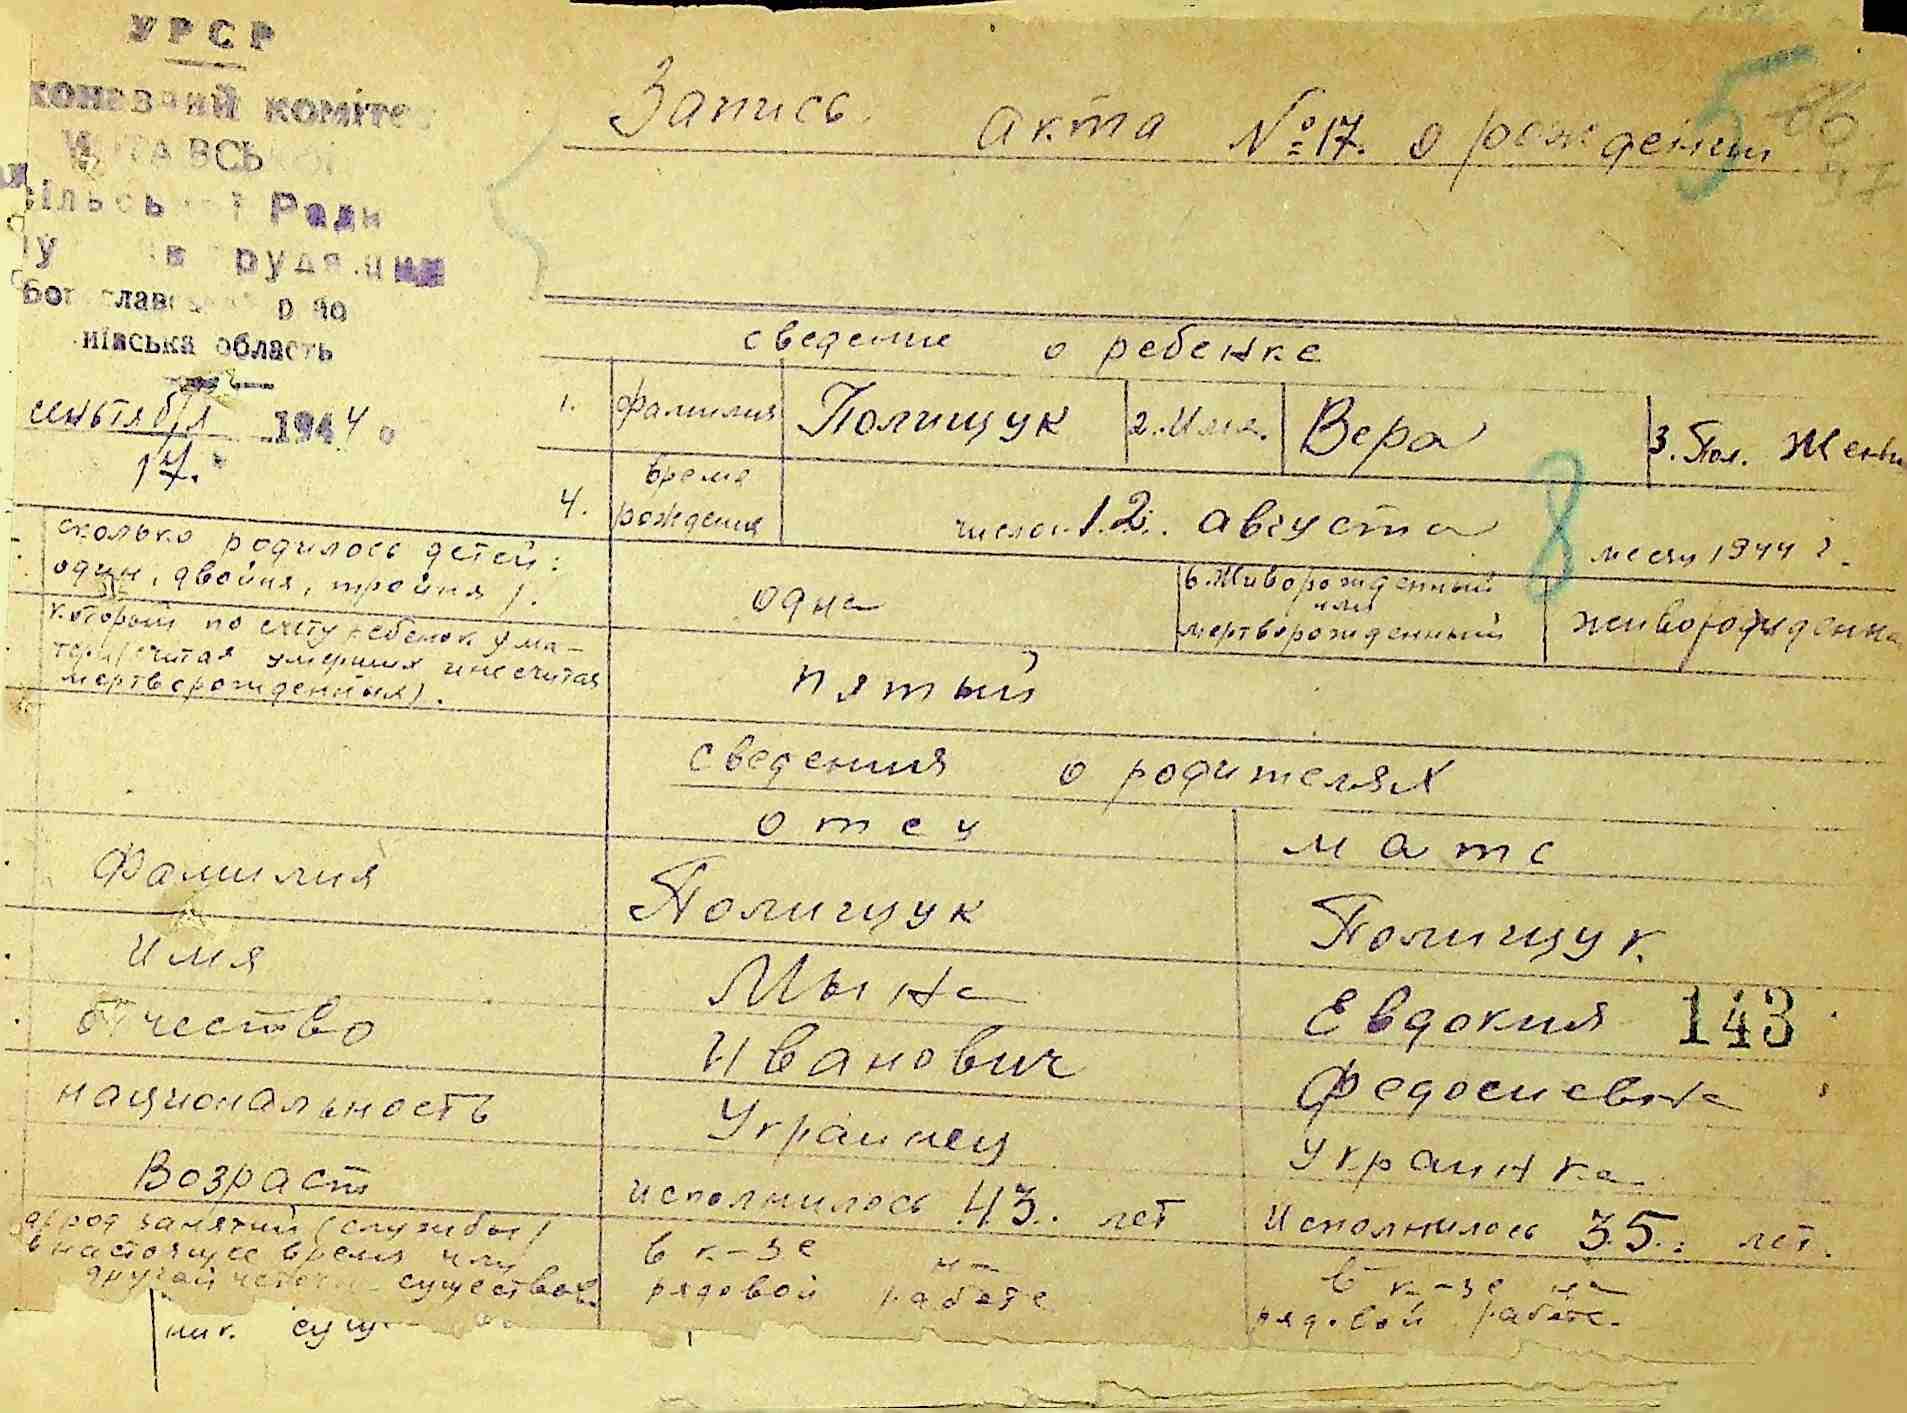 УРСР
комітет
сільської Ради
нівська область
сентября 1944
17.
Запись акта № 17. о рождении
5
сведение о ребенке
1. фамилия Полищук 2. Имя. Вера 3. Пол. Женс
4. время рождения число 12. августа 8 месяц 1944 г.
сколько родилось детей:
один, двойня, тройня). одна 6. Живорожденный или мертворожденный живорожденна
который по счету ребенок у ма-
тери (считая умерших и не считая
мертворожденных). пятый
сведения о родителях
отец мать
Фамилия Полищук Полищук
Имя Мына Евдокия 143
отчество Иванович Федосиевна
национальность Украинец Украинка
Возраст исполнилось 43. лет Исполнилось 35. лет.
а) род занятий (службы)
в настоящее время или
другой источн. существов.
в к-зе на
рядовой работе
в к-зе на
рядовой работе.
ник. сущ